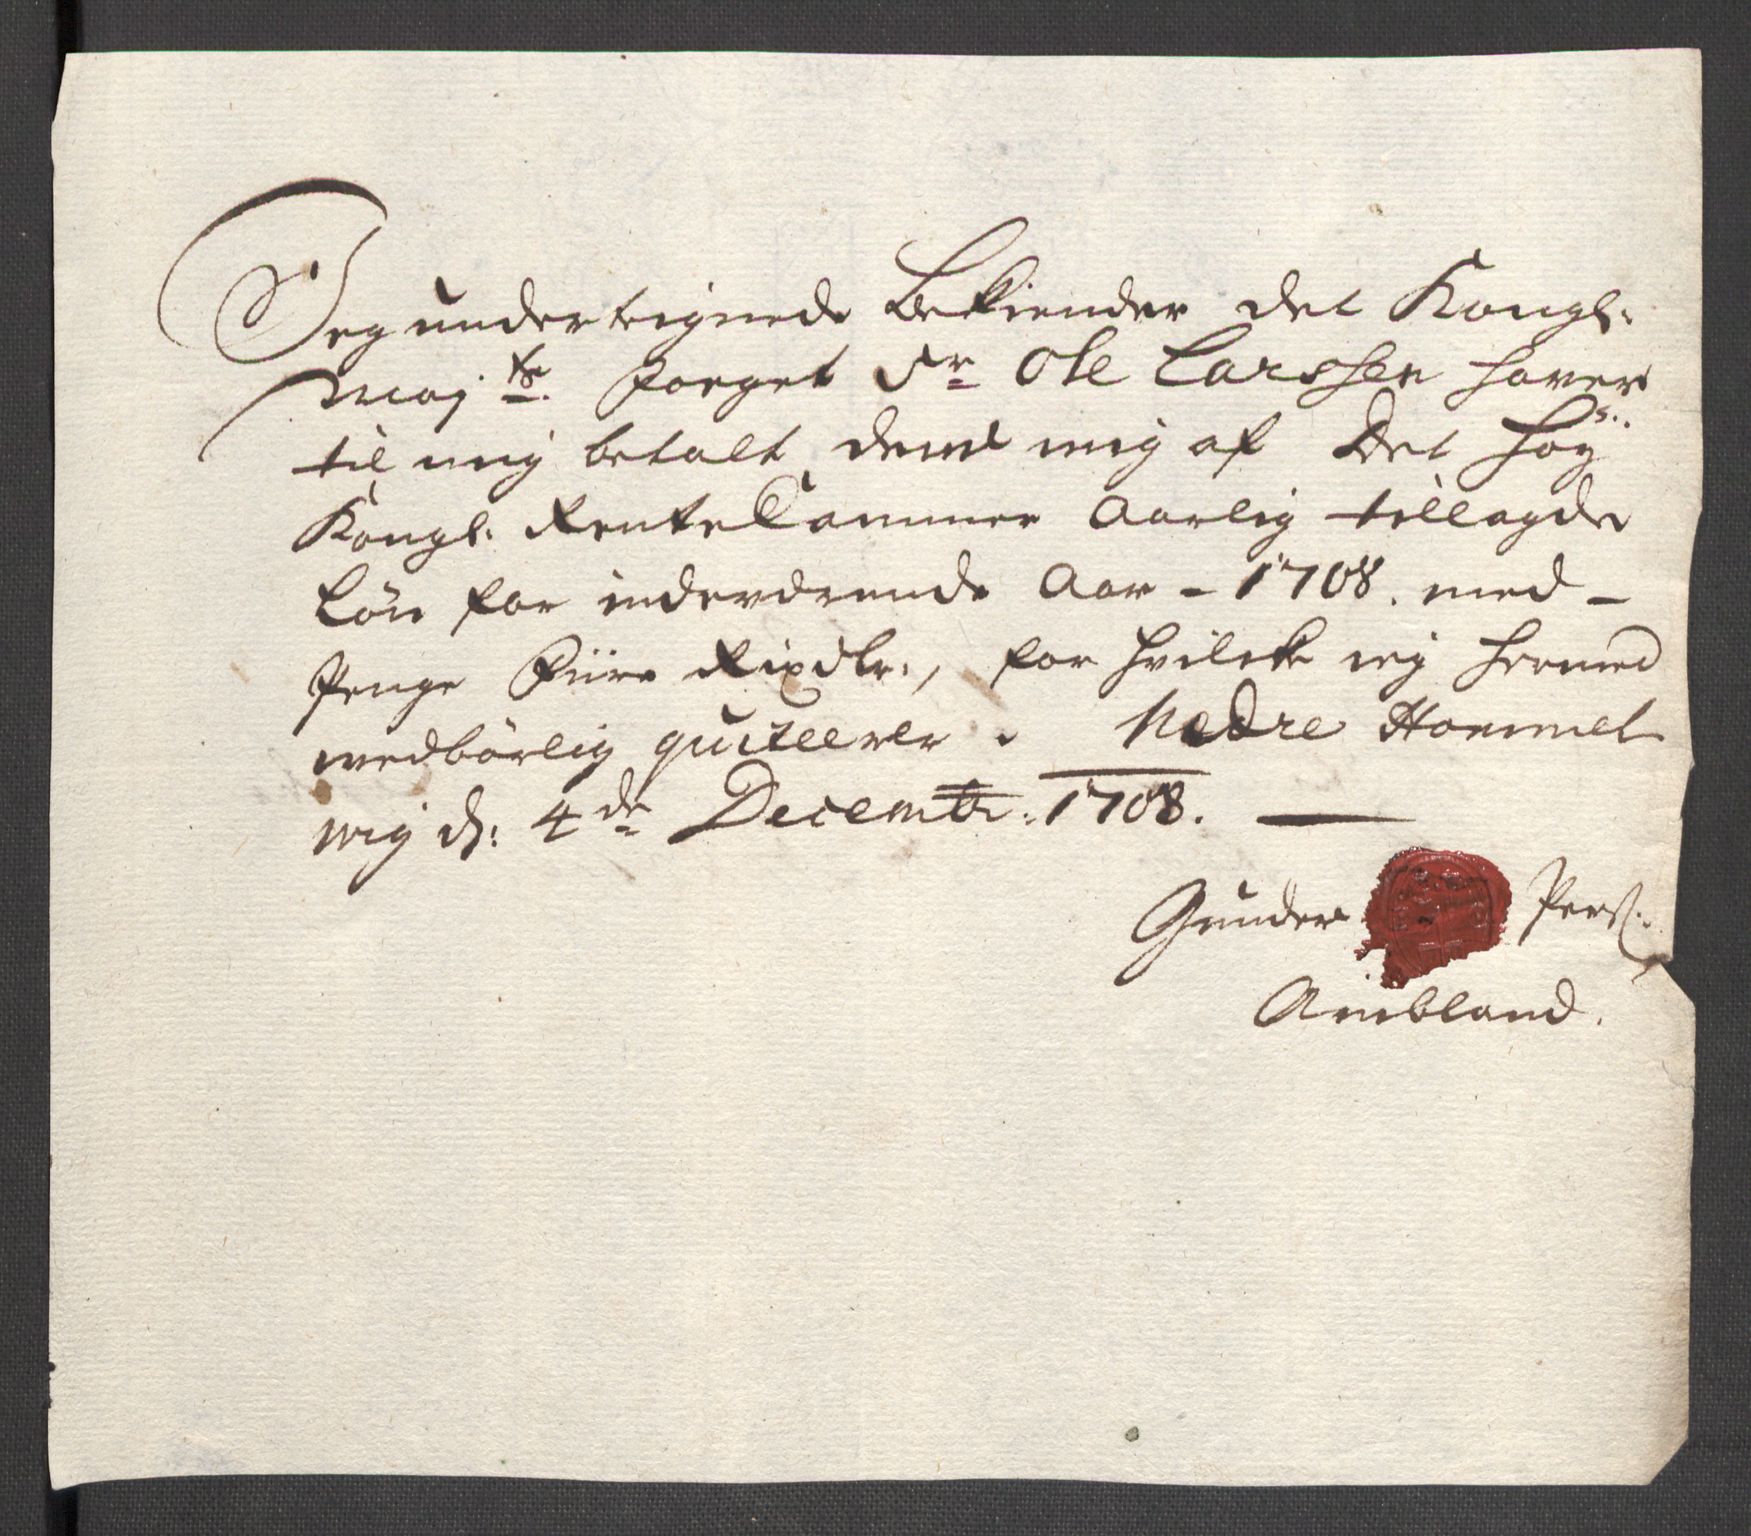 Jeg underteignede Bekiender det Kongl:
Maj:ts Foeget Sr. Ole Larssen hafver
til mig betalt, dend mig af Det Høy
Kongl: Rente Cammer Aarlig tillagde
Løn for indeværende Aar - 1708. med -
Penge Fiire Rixdlr:, for hvilcke ieg hermed
wedbørlig quiteerer. Nedre Hommel
wig d: 4de Decembr: 1708.
Gunder Pers:
Aunbland.